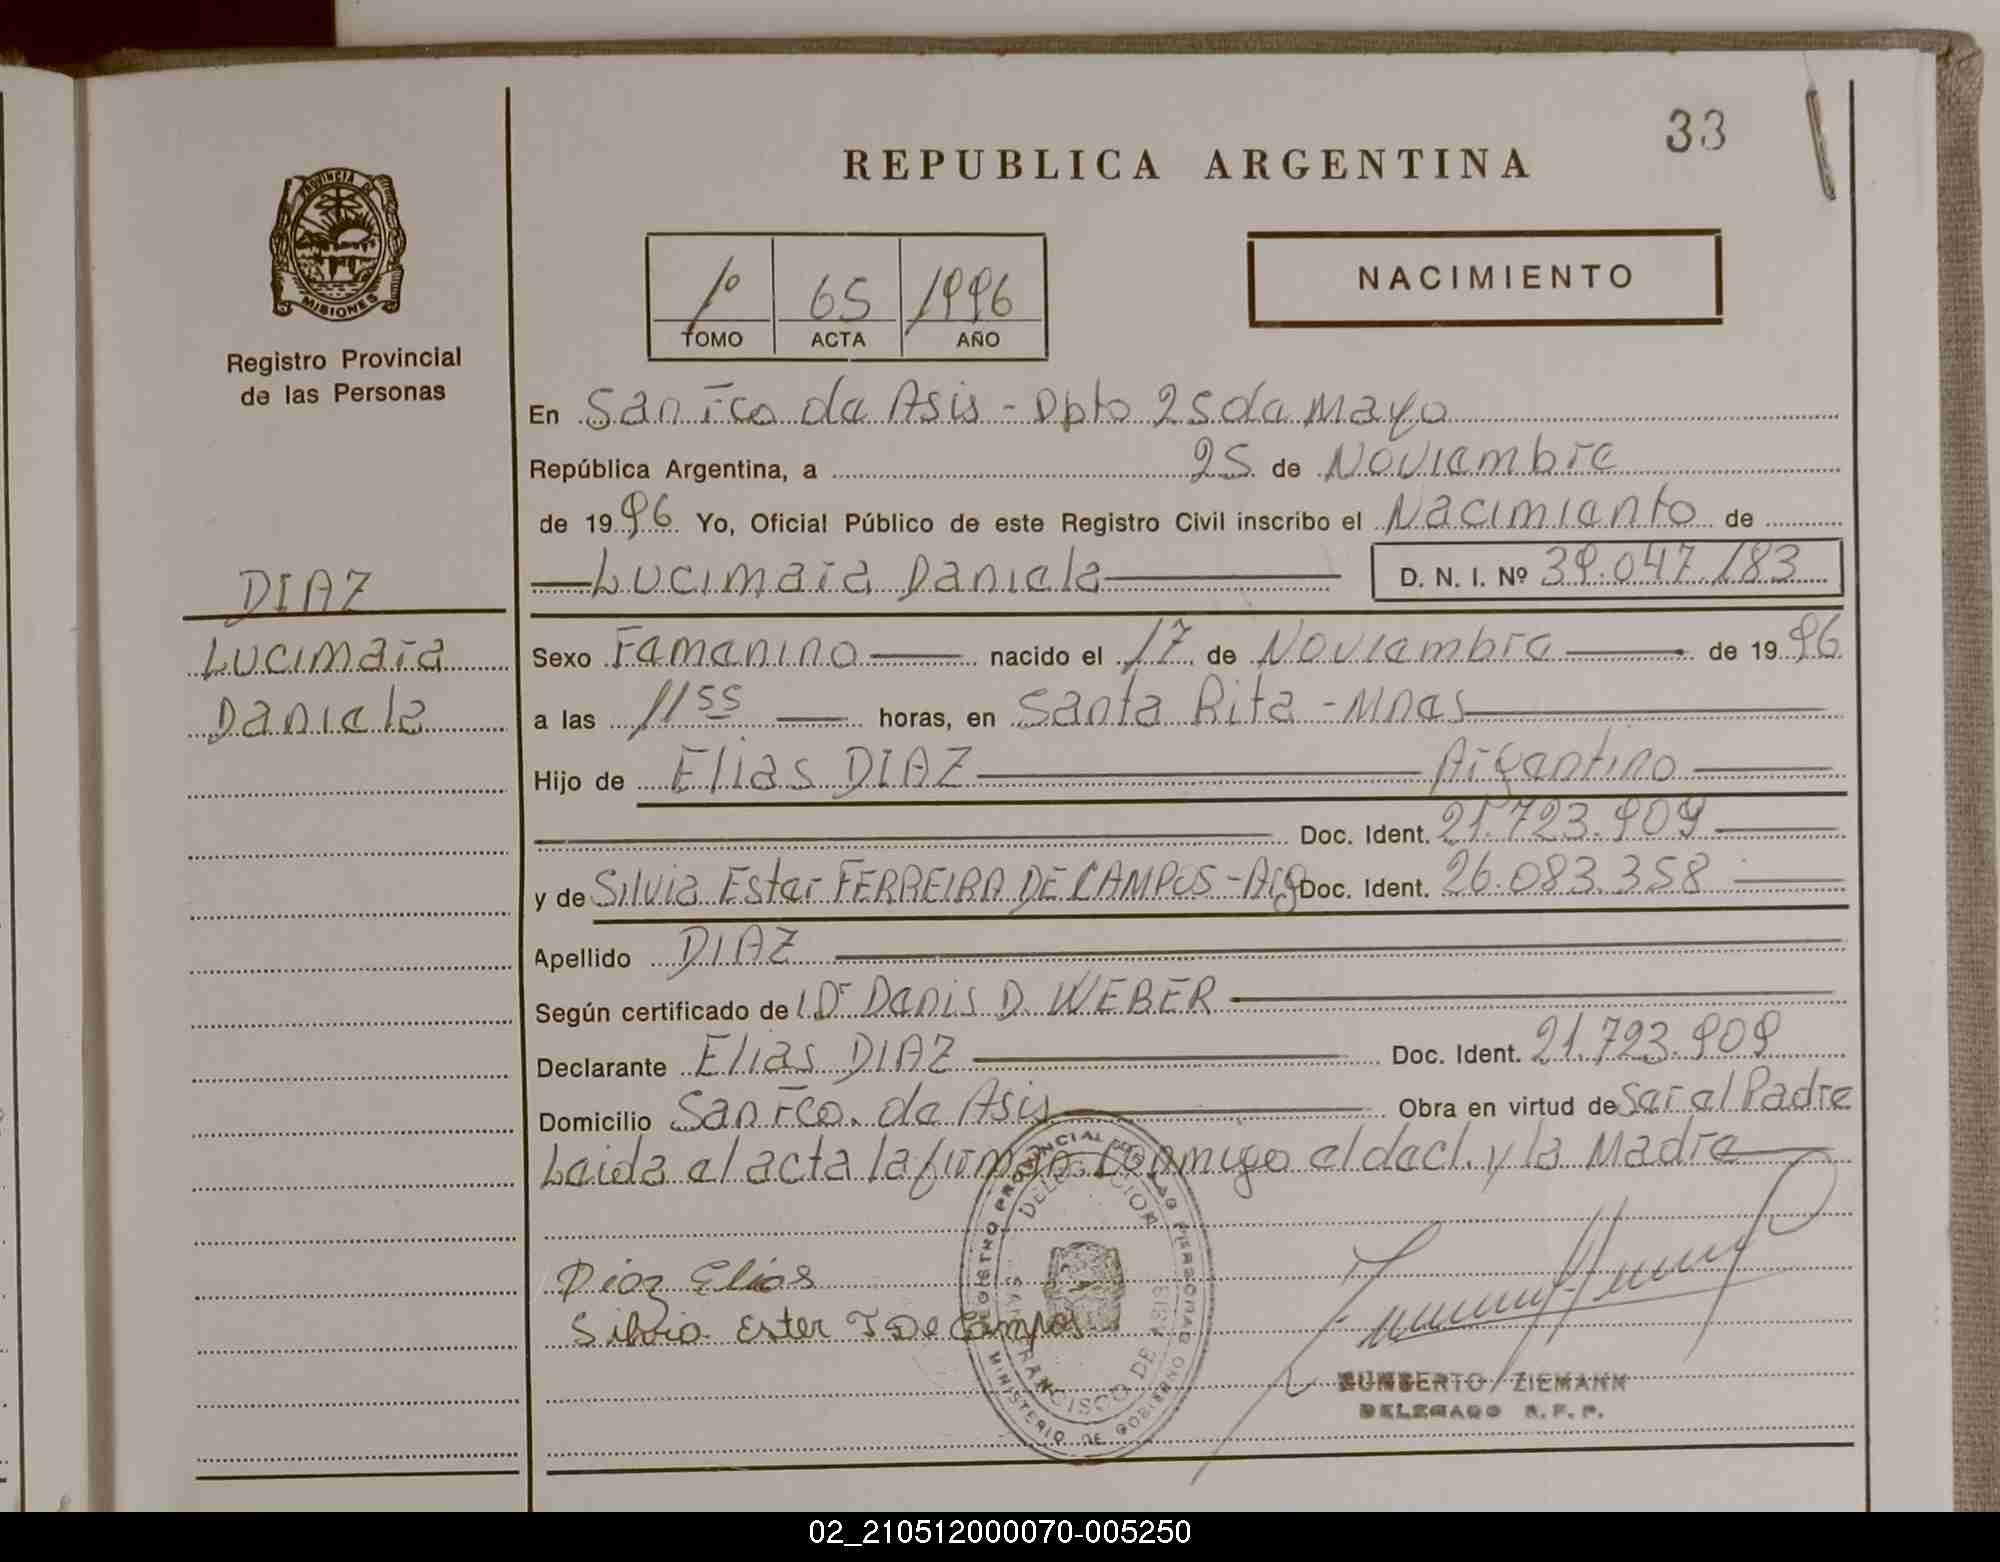 33
REPUBLICA ARGENTINA
PROVINCIA DE
MISIONES
Registro Provincial
de las Personas
1º 65 1996
TOMO ACTA AÑO
NACIMIENTO
En San Fco de Asis - Dpto 25 de Mayo
República Argentina, a 25 de Noviembre
de 1996 Yo, Oficial Público de este Registro Civil inscribo el Nacimiento de
Lucimara Daniela D. N. I. Nº 39.047.183
DIAZ
Lucimara
Daniela
Sexo Femenino nacido el 17 de Noviembre de 1996
a las 11 55 horas, en Santa Rita - Mnes
Hijo de Elias DIAZ Argentino
Doc. Ident. 21.723.909
y de Silvia Ester FERREIRA DE CAMPOS - Arg Doc. Ident. 26.083.358
Apellido DIAZ
Según certificado de l Dr Denis D. WEBER
Declarante Elias DIAZ Doc. Ident. 21.723.909
Domicilio San Fco. de Asis Obra en virtud de Ser el Padre
Leida el acta la firman conmigo el decl. y la Madre
Diaz Elias
Silvia Ester F De Campos
REGISTRO PROVINCIAL DE LAS PERSONAS
DELEGACION
SAN FRANCISCO DE ASIS
MINISTERIO DE GOBIERNO
HUMBERTO ZIEMANN
DELEGADO R. P. P.
02_210512000070-005250